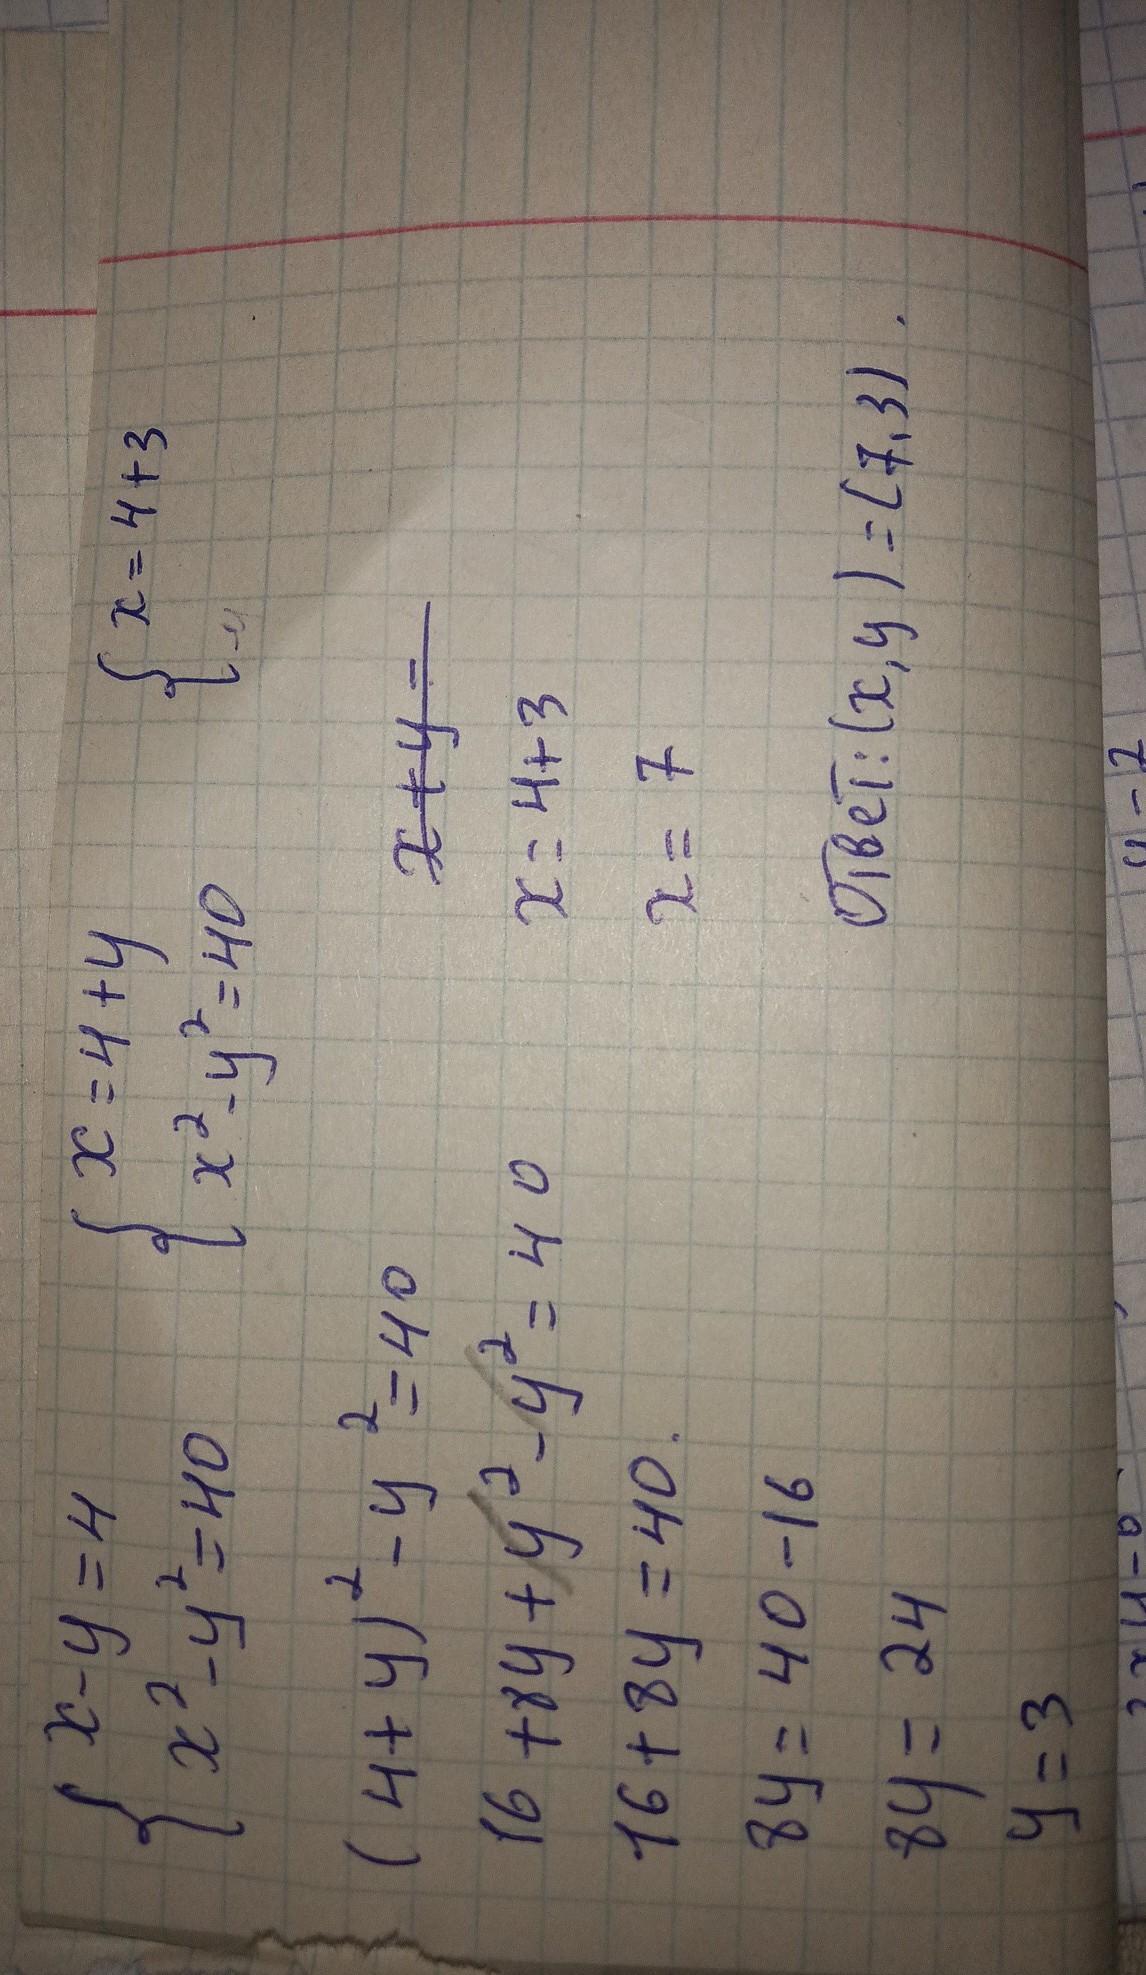 { x-y=4
x²-y²=40
{ x=4+y
x²-y²=40
{ x=4+3
(4+y)²-y²=40
16+8y+y²-y²=40
16+8y=40.
8y=40-16
8y=24
y=3
x+y=
x=4+3
x=7
Ответ:(x,y)=(7,3).